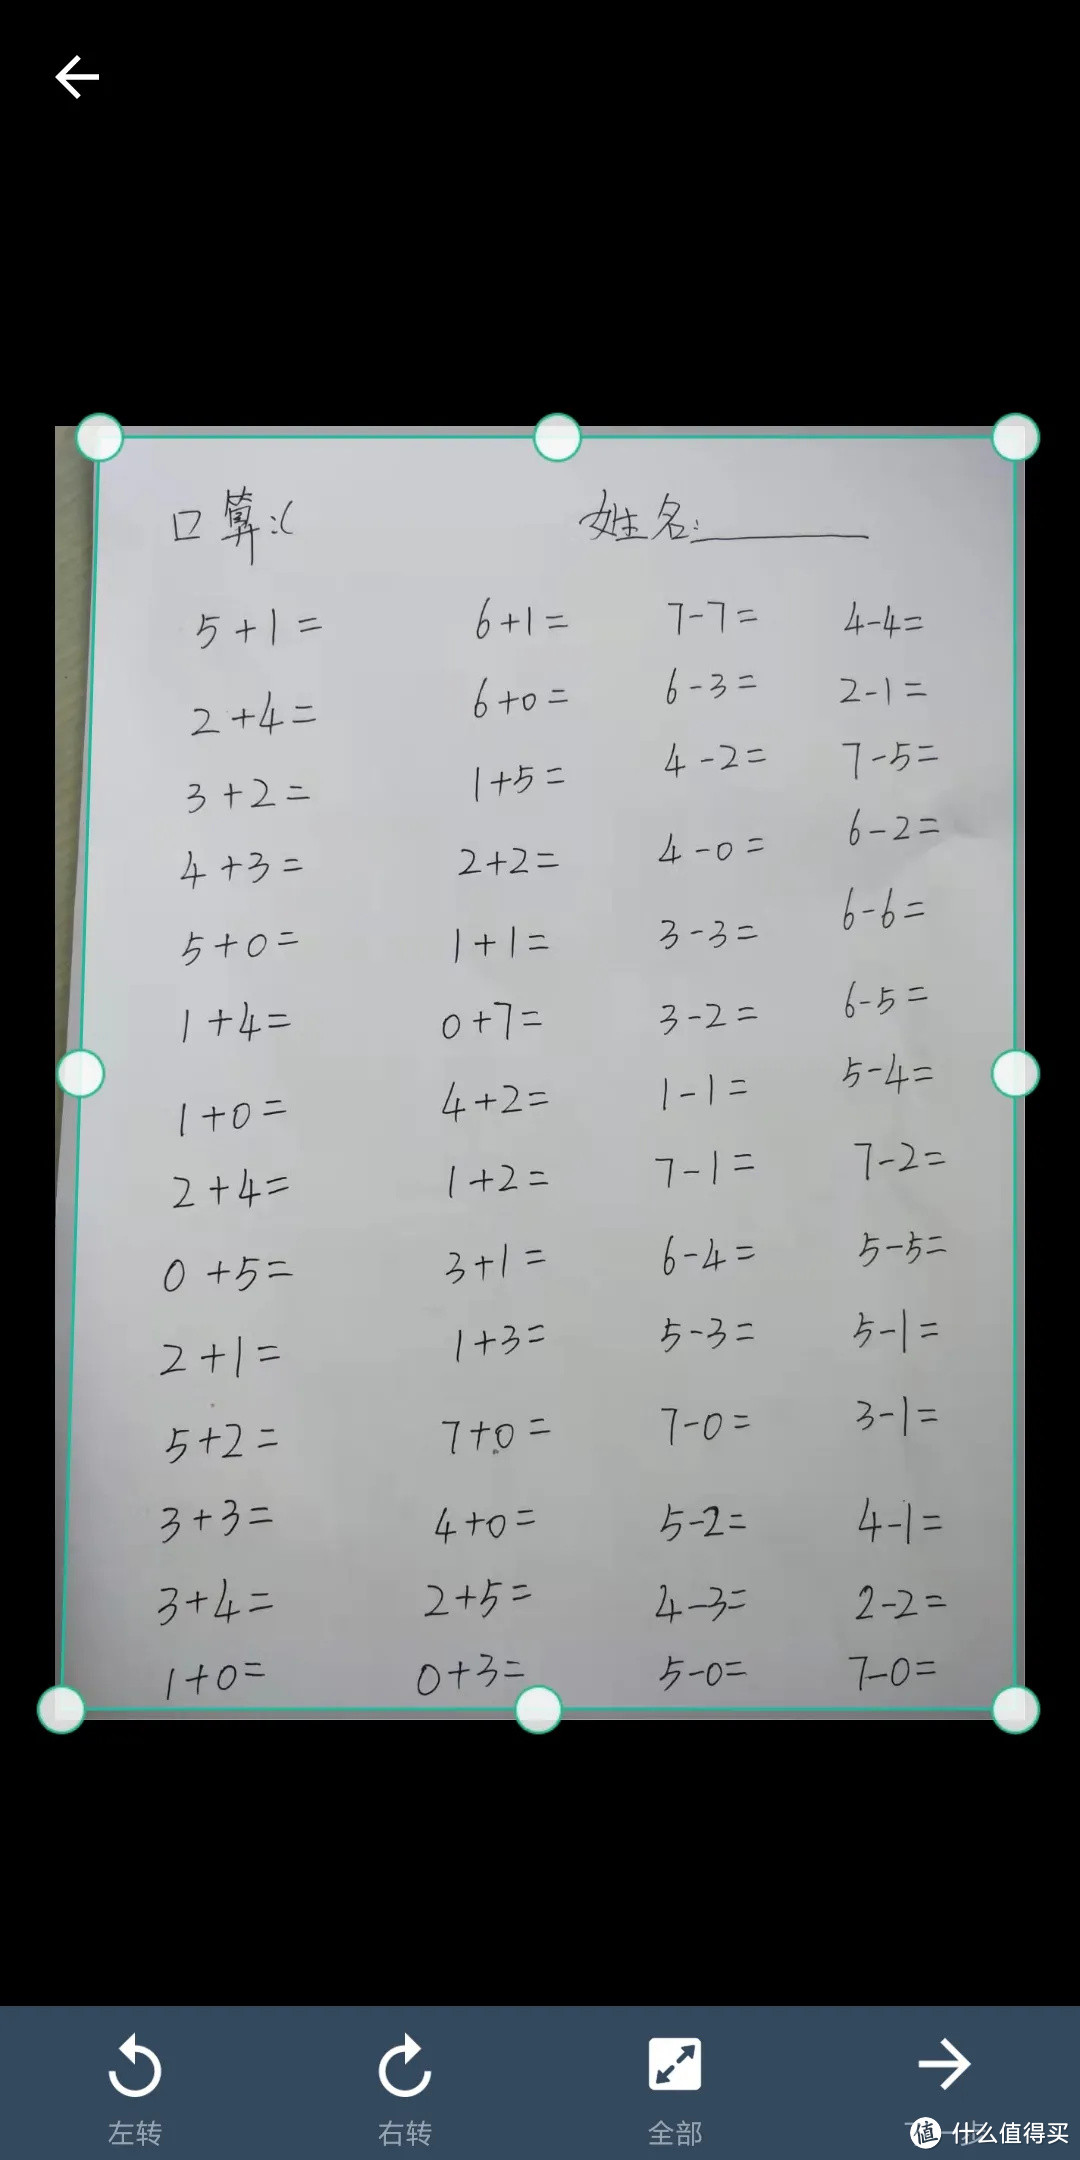 口算:(　姓名:
5+1=　6+1=　7-7=　4-4=
2+4=　6+0=　6-3=　2-1=
3+2=　1+5=　4-2=　7-5=
4+3=　2+2=　4-0=　6-2=
5+0=　1+1=　3-3=　6-6=
1+4=　0+7=　3-2=　6-5=
1+0=　4+2=　1-1=　5-4=
2+4=　1+2=　7-1=　7-2=
0+5=　3+1=　6-4=　5-5=
2+1=　1+3=　5-3=　5-1=
5+2=　7+0=　7-0=　3-1=
3+3=　4+0=　5-2=　4-1=
3+4=　2+5=　4-3=　2-2=
1+0=　0+3=　5-0=　7-0=
左转　右转　全部
值 什么值得买